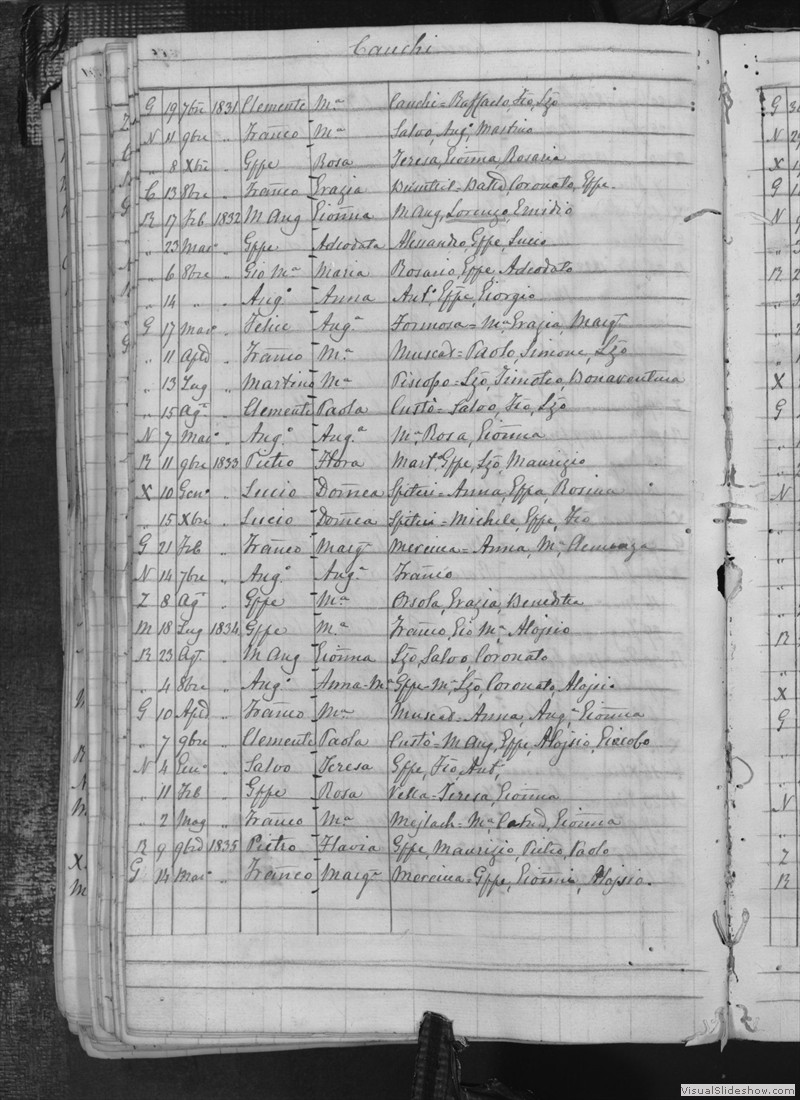 Cauchi
G 19 7bre 1831 Clemente Mª Cauchi = Raffaelo, Fco, Lzo
N 11 9bre " Franco Mª Salvo, Angº, Martino
" 8 Xbre " Gffe Rosa Teresa, Gioñna, Rosaria
C 13 8bre " Franco Grazia Coronato, Gffe.
R 17 Feb 1832 M Ang Gioñna M Ang, Lorenzo, Emidio
" 23 Mar " Gffe. Adeodata Alessandro, Gffe, Lucio
" 6 8bre " Gio Mª Maria Rosario, Gffe, Adeodato
" 14 " " Angº Anna Antº, Gffe, Giorgio
G 17 Mar " Felice Angª Formosa = Mª Grazia, Margª
" 11 Apl " Franco Mª Muscat = Paolo, Simone, Lzo
" 13 Lug " Martino Mª Piscopo = Lzo, Timoteo, Bonaventura
" 15 Agº " Clemente Paola Custò = Salvo, Fco, Lzo
N 7 Mar " Angº Angª Mª Rosa, Gioñna
R 11 9bre 1833 Pietro Flora Gffe, Lzo, Maurizio
X 10 Genº " Lucio Domñca Spiteri = Anna, Gffa, Rosina
" 15 Xbre " Lucio Domñca Spiteri = Michele, Gffe, Fco
G 21 Feb " Franco Margª Mercieca = Anna, Mª Clemenza
N 14 7bre " Angº Angª Franco
Z 8 Agº " Gffe Mª Orsola, Grazia, Benedetta
M 18 Lug 1834 Gffe Mª Franco, Gio Mª, Alojsio
R 23 Agº " M Ang Gioñna Lzo, Salvo, Coronato
" 4 8bre " Angº Anna-Mª Gffe-Mª, Lzo, Coronato, Alojsio
G 10 Apl " Franco Mª Muscat = Anna, Angª, Gioñna
" 7 9bre " Clemente Paola Custò = M Ang, Gffe, Alojsio, Giacobo
N 4 Genº " Salvo Teresa Gffe, Fco, Antº,
" 11 Feb " Gffe Rosa Vella = Teresa, Gioñna
" 2 Mag " Franco Mª Mejlach = Mª Catud, Gioñna
R 9 1835 Pietro Flavia Gffe, Maurizio, Pietro, Paolo
G 14 Mar " Franco Margª Mercieca = Gffe, Gioñni, Alojsio.
VisualSlideshow.com